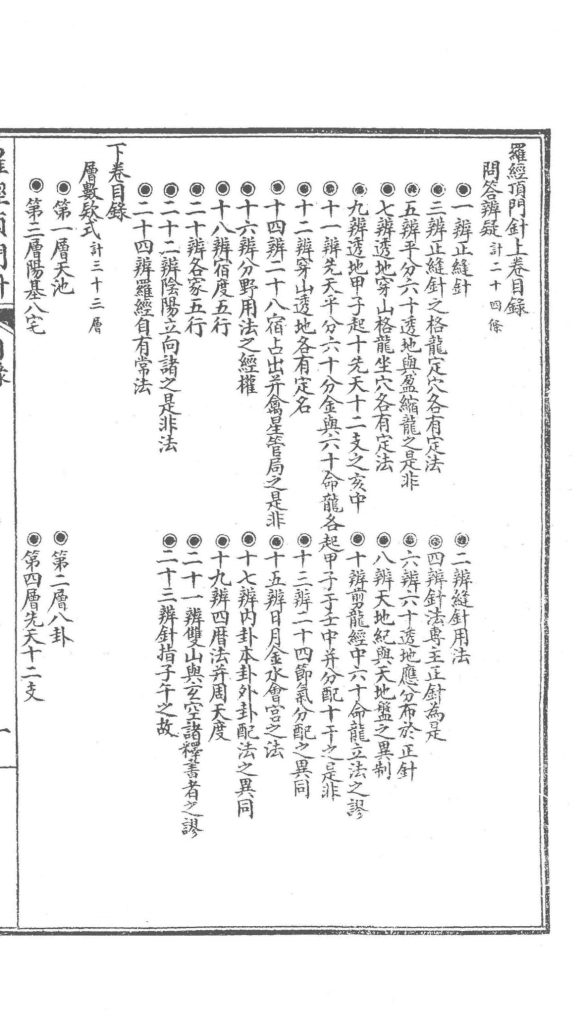 羅經頂門針上卷目錄
問答辨疑 計二十四條
一辨正縫針
二辨縫針用法
三辨正縫針之格龍定穴各有定法
四辨針法專主正針為是
五辨平分六十透地與盈縮龍之是非
六辨六十透地應分布於正針
七辨透地穿山格龍坐穴各有定法
八辨天地紀與天地盤之異制
九辨透地甲子起十先天十二支之亥中
十辨剪龍經中六十命龍立法之謬
十一辨先天平分六十分金與六十命龍各起甲子于壬中并分配十干之是非
十二辨穿山透地各有定名
十三辨二十四節氣分配之異同
十四辨二十八宿占出并禽星管局之是非
十五辨日月金水會宮之法
十六辨分野用法之經權
十七辨内卦本卦外卦配法之異同
十八辨宿度五行
十九辨四曆法并周天度
二十辨各家五行
二十一辨雙山與玄空諸釋書者之謬
二十二辨陰陽立向諸之是非法
二十三辨針指子午之故
二十四辨羅經自有常法
下卷目錄
層數欵式 計三十三層
第一層天池
第二層八卦
第三層陽基八宅
第四層先天十二支
羅經頂門針
目錄
一